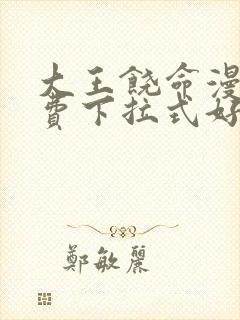 大王饶命漫
费下拉式好
鄭敏麗